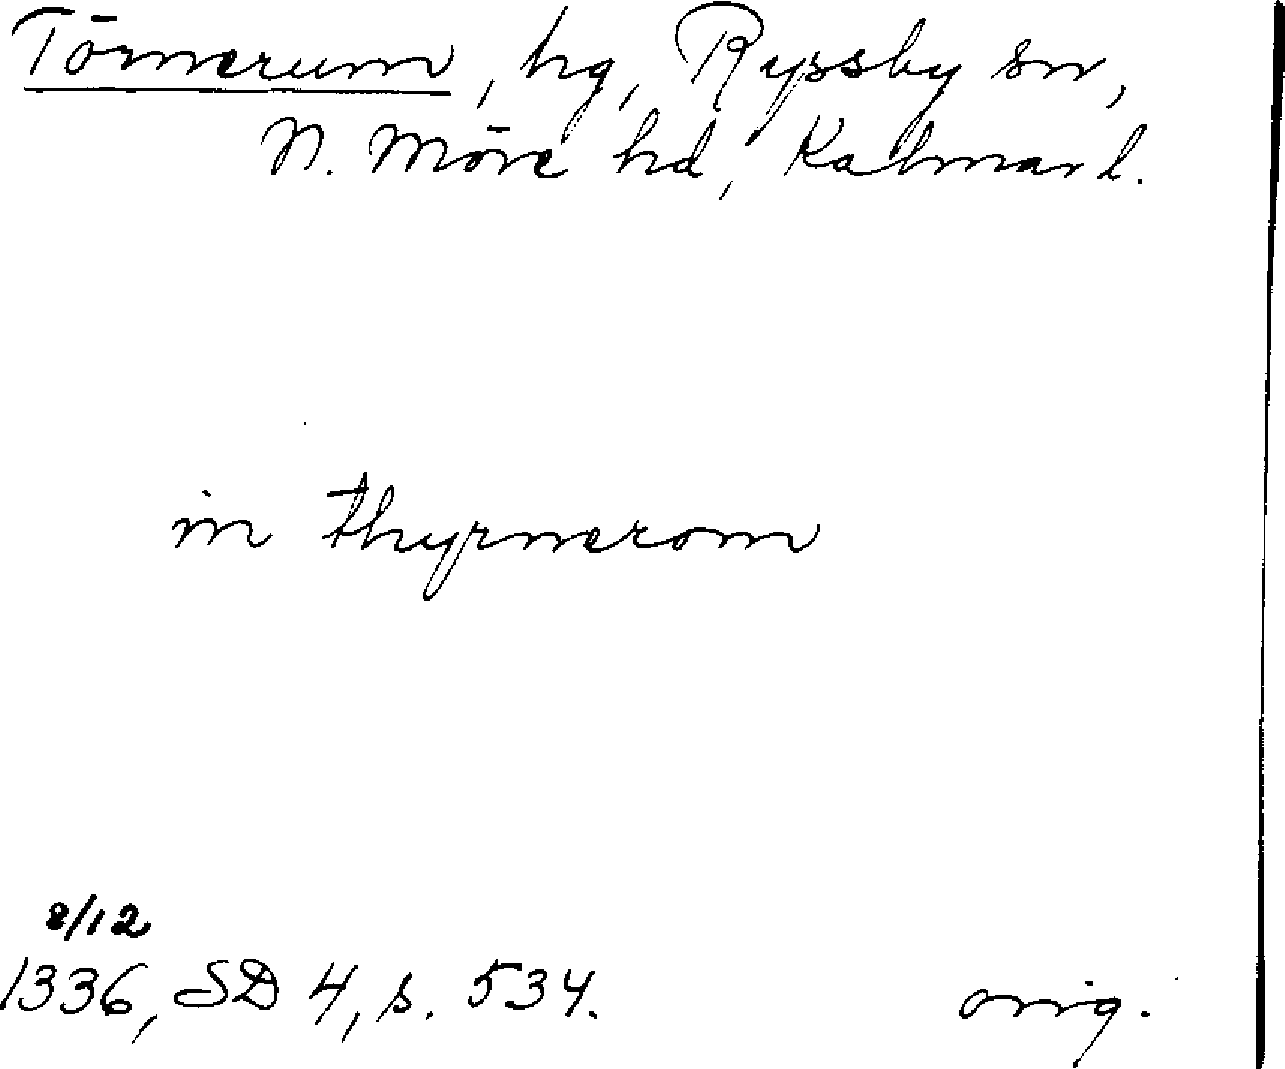 Törnerum, hg, Ryssby sn,
N. Möre hd, Kalmar l.
in thyrnerom
8/12
1336, SD 4, s. 534.
orig.